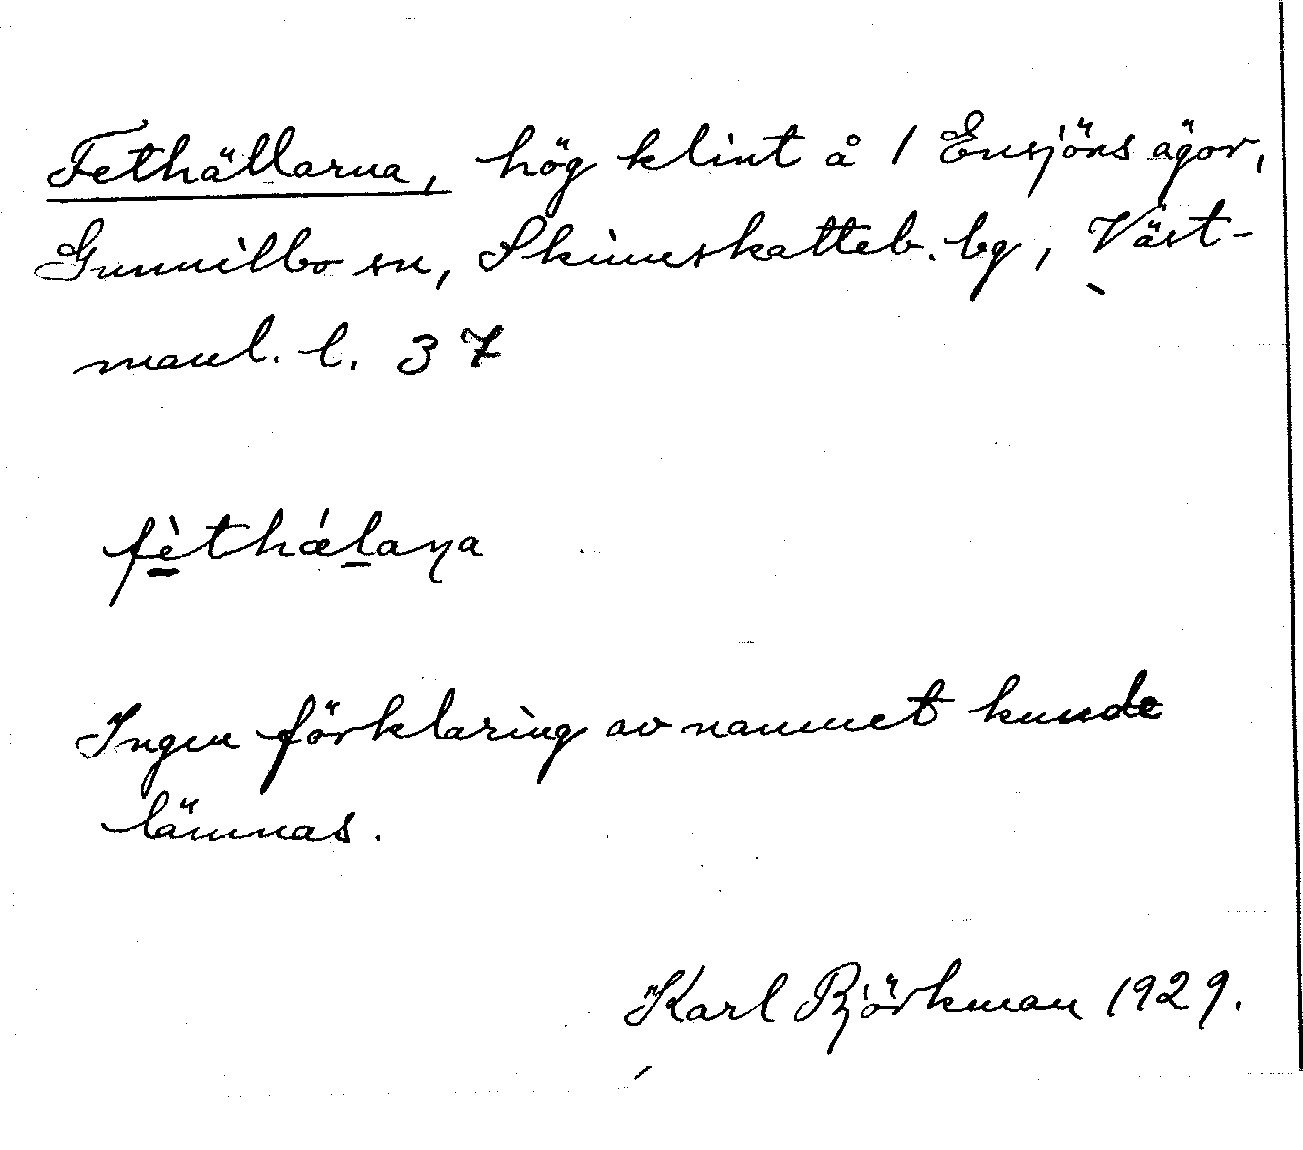 Fethällarna, hög klint å 1 Ensjöns ägor,
Gunnilbo sn, Skinnskatteb. bg, Väst-
manl. l. 37
fèthǽlaṉa
Ingen förklaring av namnet kunde
lämnas.
Karl Björkman 1929.